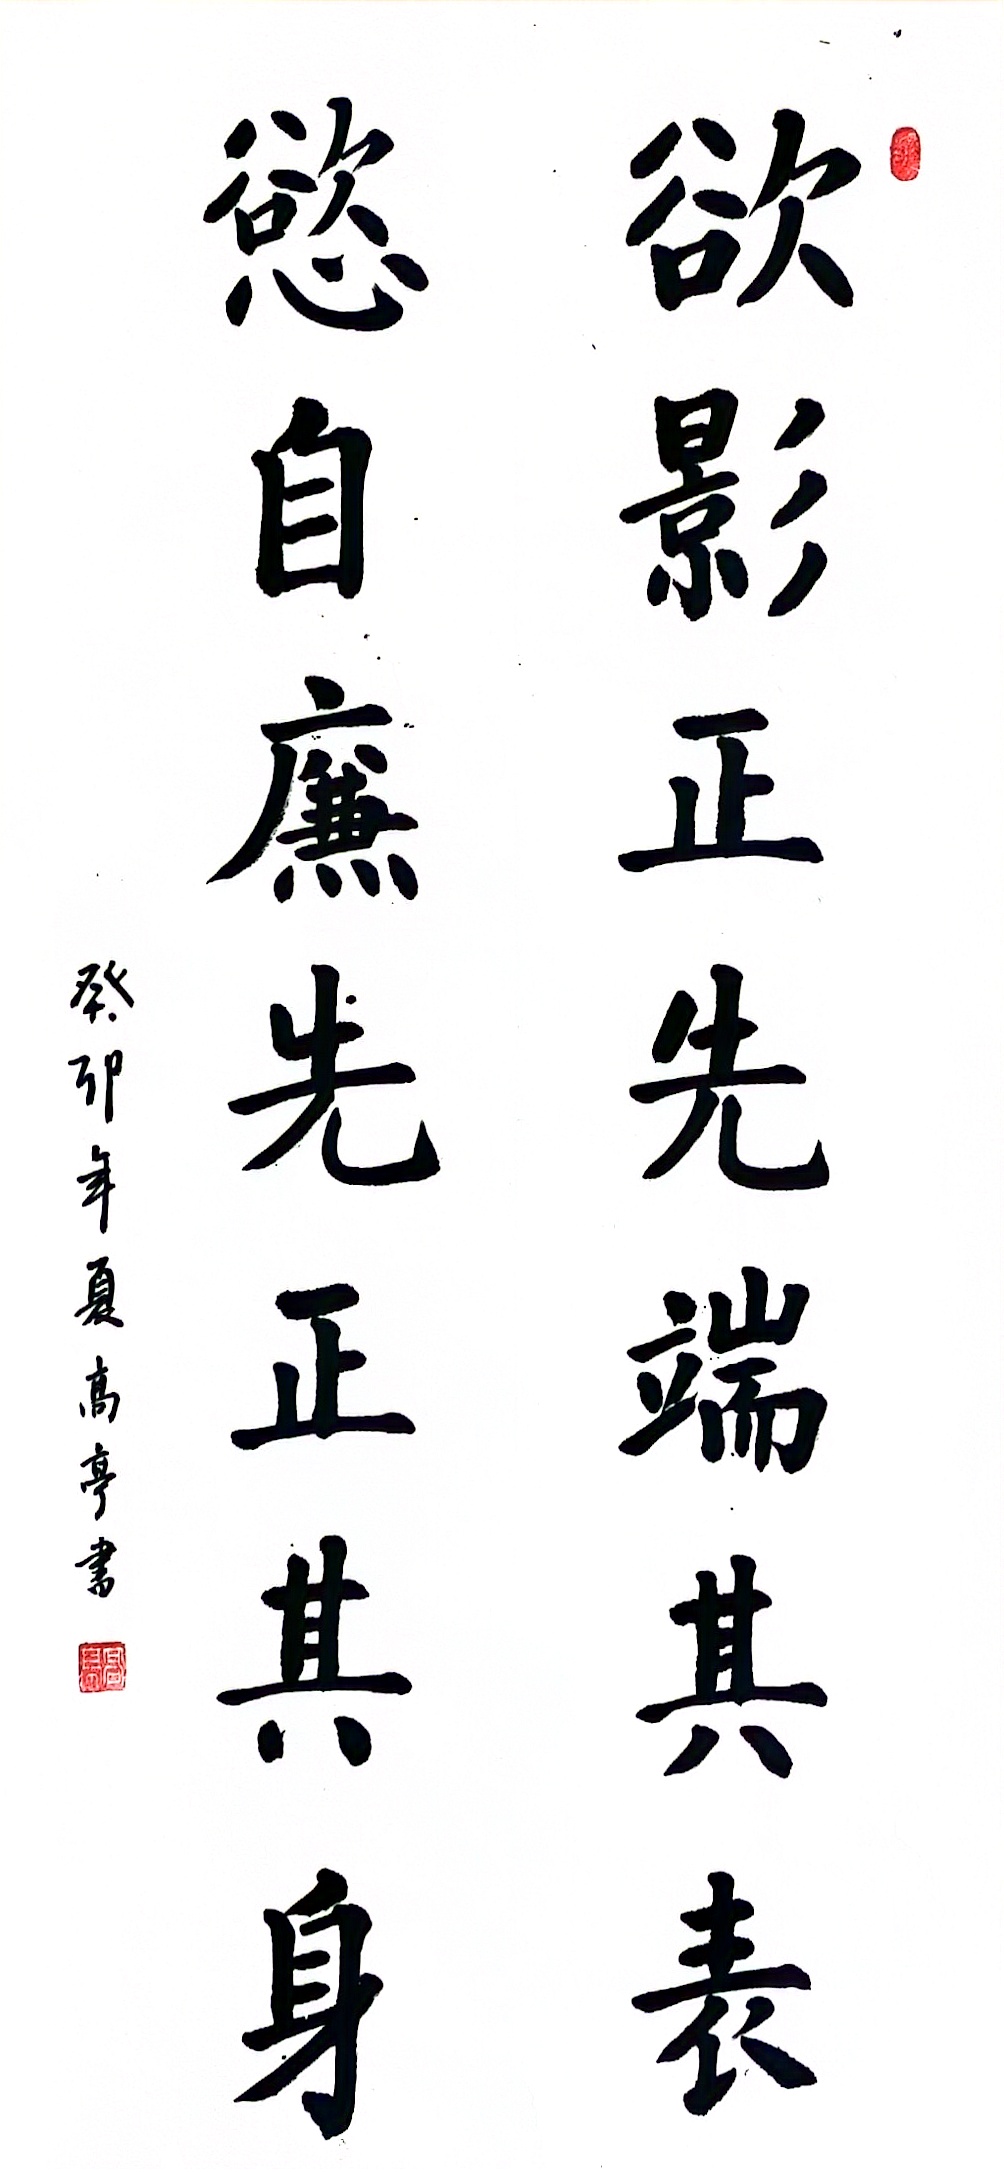 欲影正先端其表
慾自廉先正其身
癸卯年夏高亭書